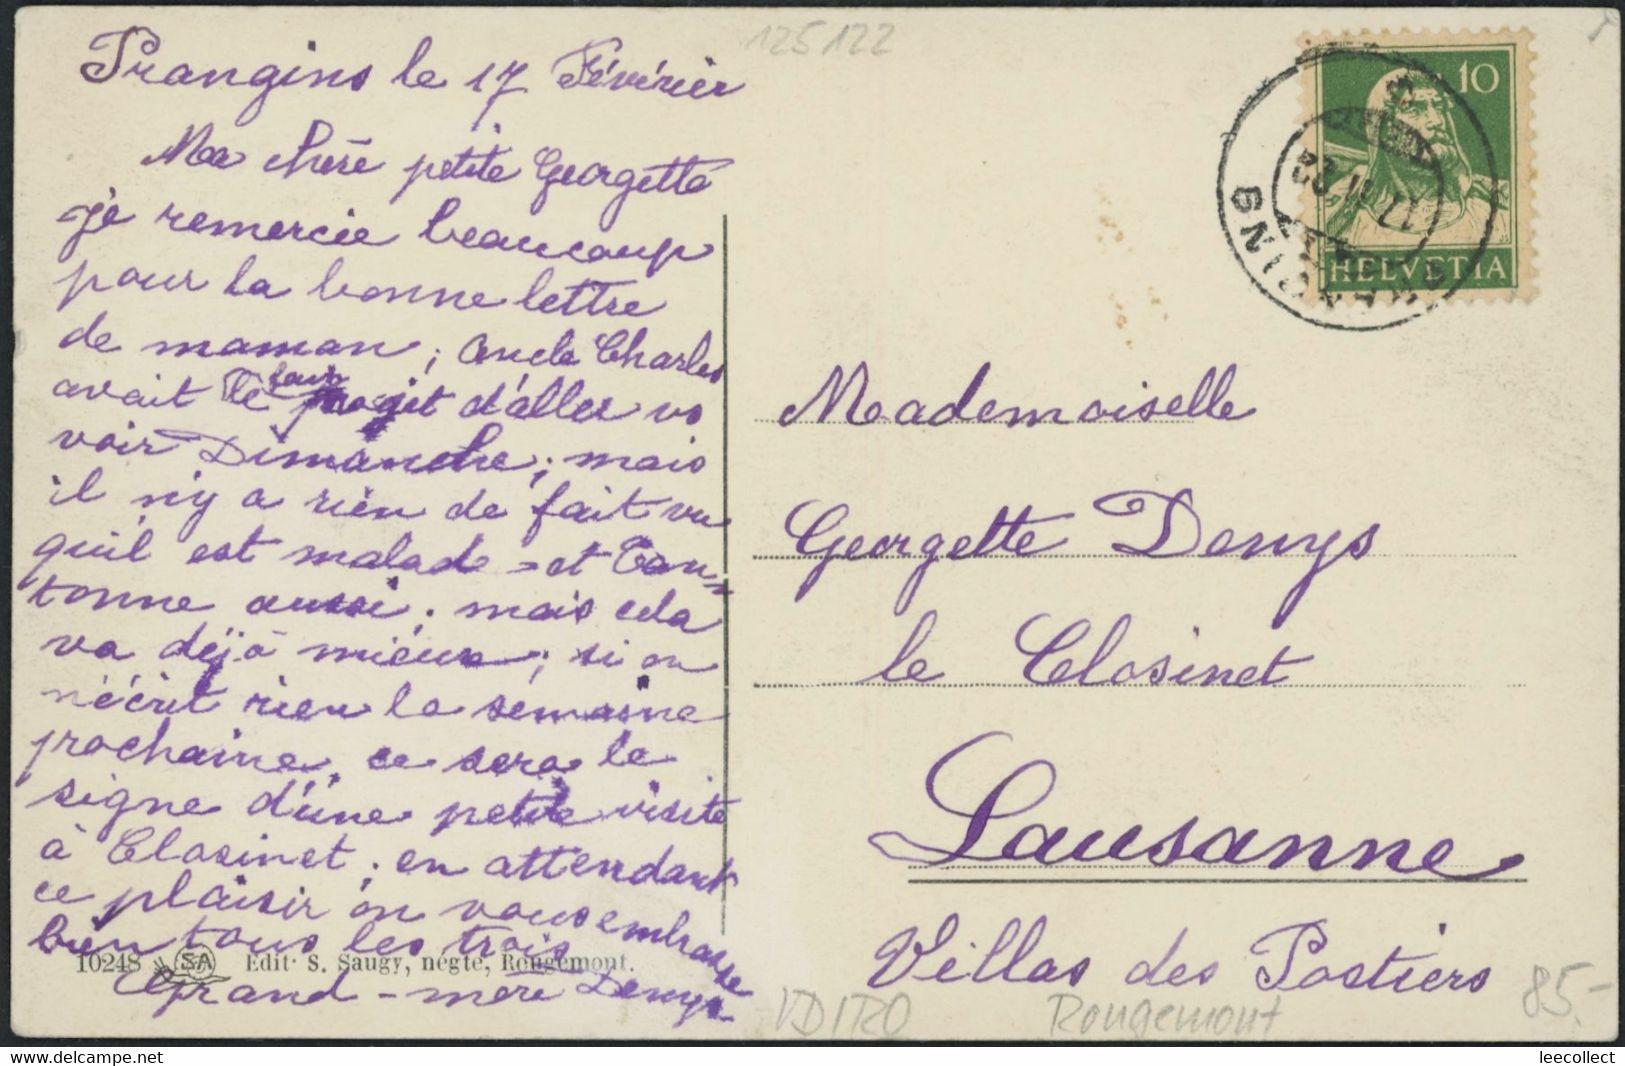 125122
Prangins le 17 Février
Ma chère petite Georgette
je remercie beaucoup
pour la bonne lettre
de maman; Oncle Charles
avait le projet d'aller vs
voir Dimanche; mais
il n'y a rien de fait vu
qu'il est malade - et Tan-
tonne aussi; mais cela
va déjà mieux; si on
n'écrit rien la semaine
prochaine, ce sera le
signe d'une petite visite
à Closinet; en attendant
ce plaisir on vous embrasse
bien tous les trois
Grand-mère Denys
10248 SA Edit. S. Saugy, négte, Rougemont.
10
HELVETIA
17 II
Mademoiselle
Georgette Denys
le Closinet
Lausanne
Villas des Postiers
VD1RO Rougemont 85.-
leecollect